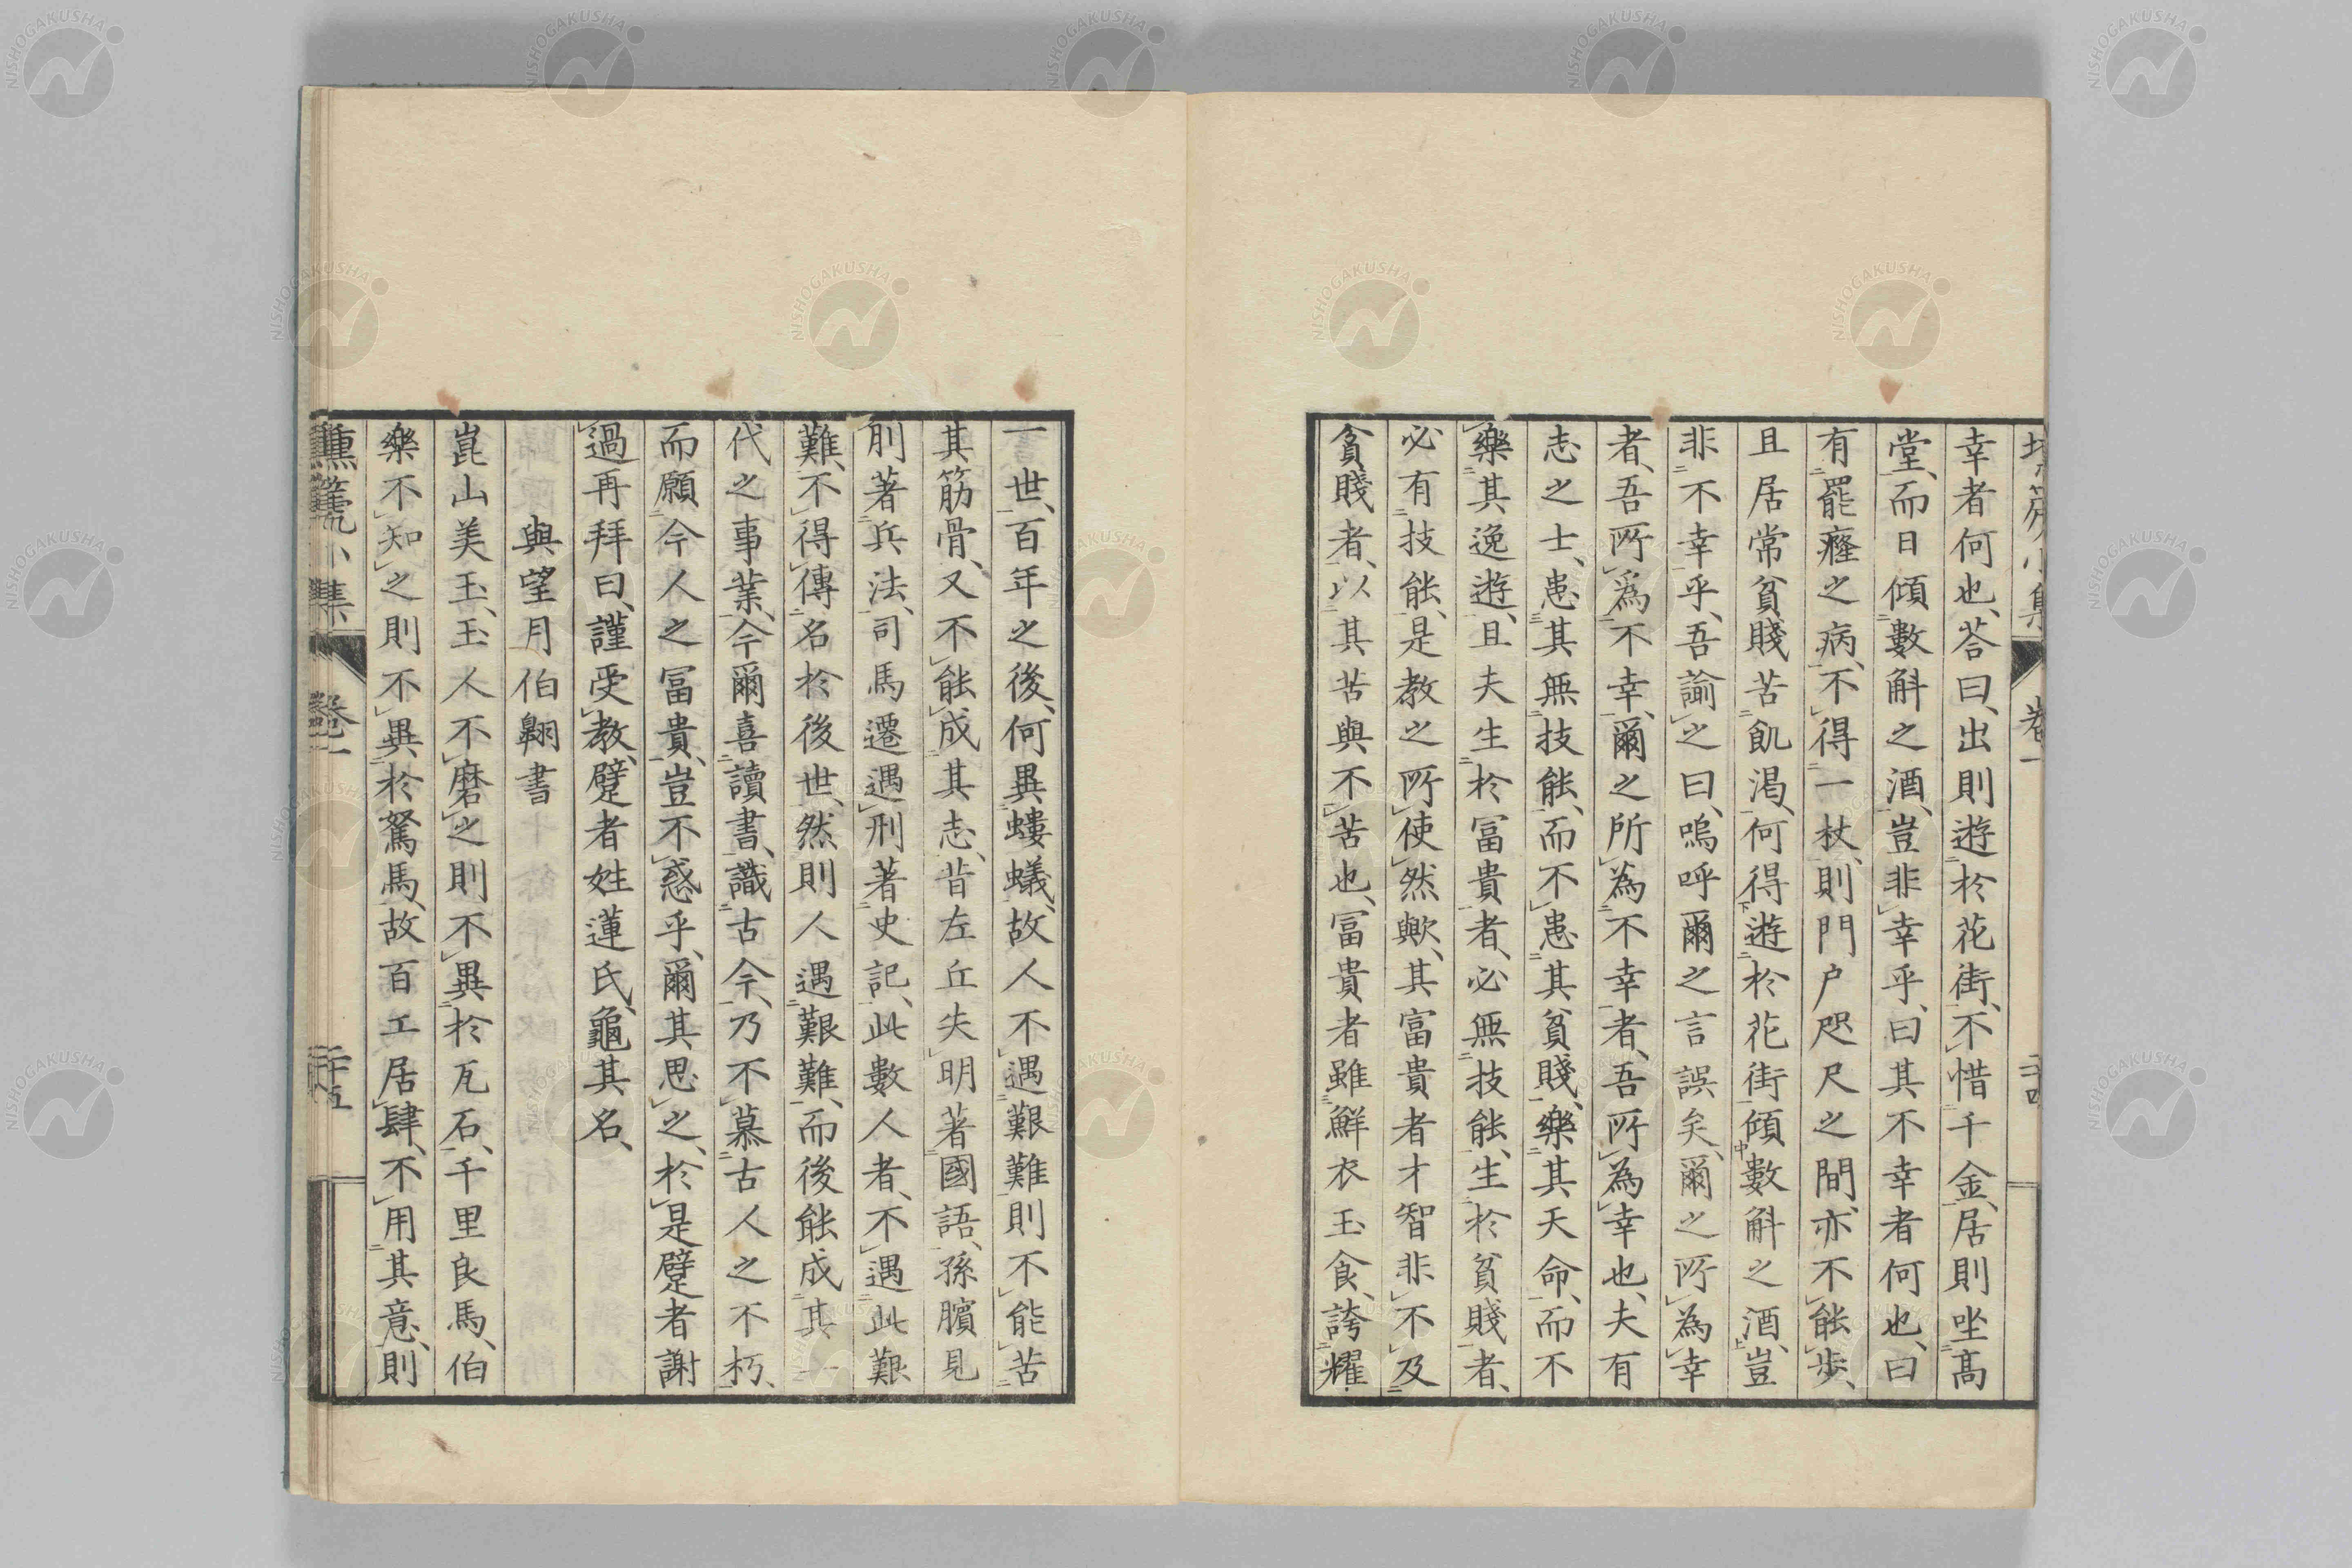 幸者何也、荅曰、出則遊於花街、不惜千金、居則坐高
堂、而日傾數斛之酒、豈非幸乎、曰其不幸者何也、曰
有罷癃之病、不得一杖、則門戶咫尺之間、亦不能歩、
且居常貧賤苦飢渇、何得遊於花街傾數斛之酒、豈
非不幸乎、吾諭之曰、嗚呼爾之言誤矣、爾之所為幸
者、吾所為不幸、爾之所為不幸者、吾所為幸也、夫有
志之士、患其無技能、而不患其貧賤、樂其天命、而不
樂其逸遊、且夫生於冨貴者、必無技能、生於貧賤者、
必有技能、是教之所使然歟、其富貴者才智非不及
貧賤者、以其苦與不苦也、冨貴者雖鮮衣玉食、誇耀
一世、百年之後、何異螻蟻、故人不遇艱難則不能苦
其筋骨、又不能成其志、昔左丘失明著國語、孫臏見
刖著兵法、司馬遷遇刑著史記、此數人者、不遇此艱
難、不得傳名於後世、然則人遇艱難、而後能成其一
代之事業、今爾喜讀書、識古今、乃不慕古人之不朽、
而願今人之冨貴、豈不惑乎、爾其思之、於是躄者謝
過再拜曰、謹受教、躄者姓蓮氏、龜其名、
與望月伯翺書
崑山美玉、玉人不磨之則不異於瓦石、千里良馬、伯
樂不知之則不異於駑馬、故百工居肆、不用其意、則
壎篪小集
卷一
二十四
壎篪小集
卷一
二十五
NISHOGAKUSHA